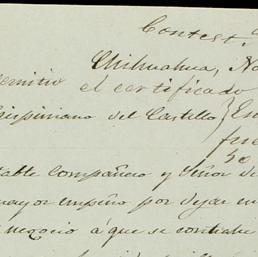 Contest.
Chihuahua, No
remitio el certificado
Cirpriniano del Castillo } En
fue
table Compañero y Señor de
mayor empeño por dejar en
negocio á que se contrahe